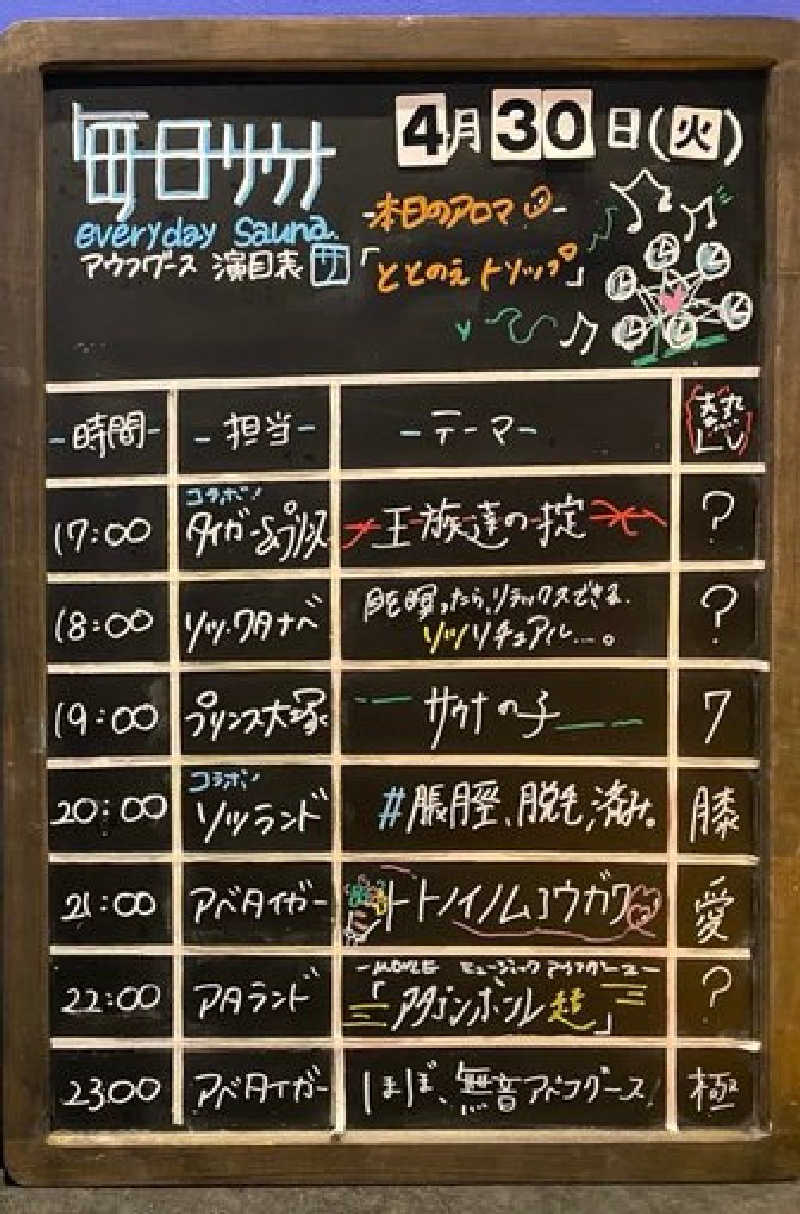 毎日サウナ
4月30日(火)
everyday Sauna.
アウフグース 演目表 サ
-本日のアロマ-
「ととのえトリップ」
-時間- -担当- -テーマ- 熱
コラボ!
17:00 タイガー&プリンス 王族達の掟 ?
18:00 ソッ・ワタナベ 目を瞑ったら、リラックスできる。 ?
ソッソリチュアル...。
19:00 プリンス大塚 サウナの子 7
コラボ!
20:00 ソッランド #脹脛、脱毛、済み。 膝
21:00 アベタイガー トトノイノムコウガワ 愛
-MOVIE ミュージック アウフグース-
22:00 アタランド 「アタゴンボール超」 ?
23:00 アベタイガー ほぼ、無音アウフグース! 極